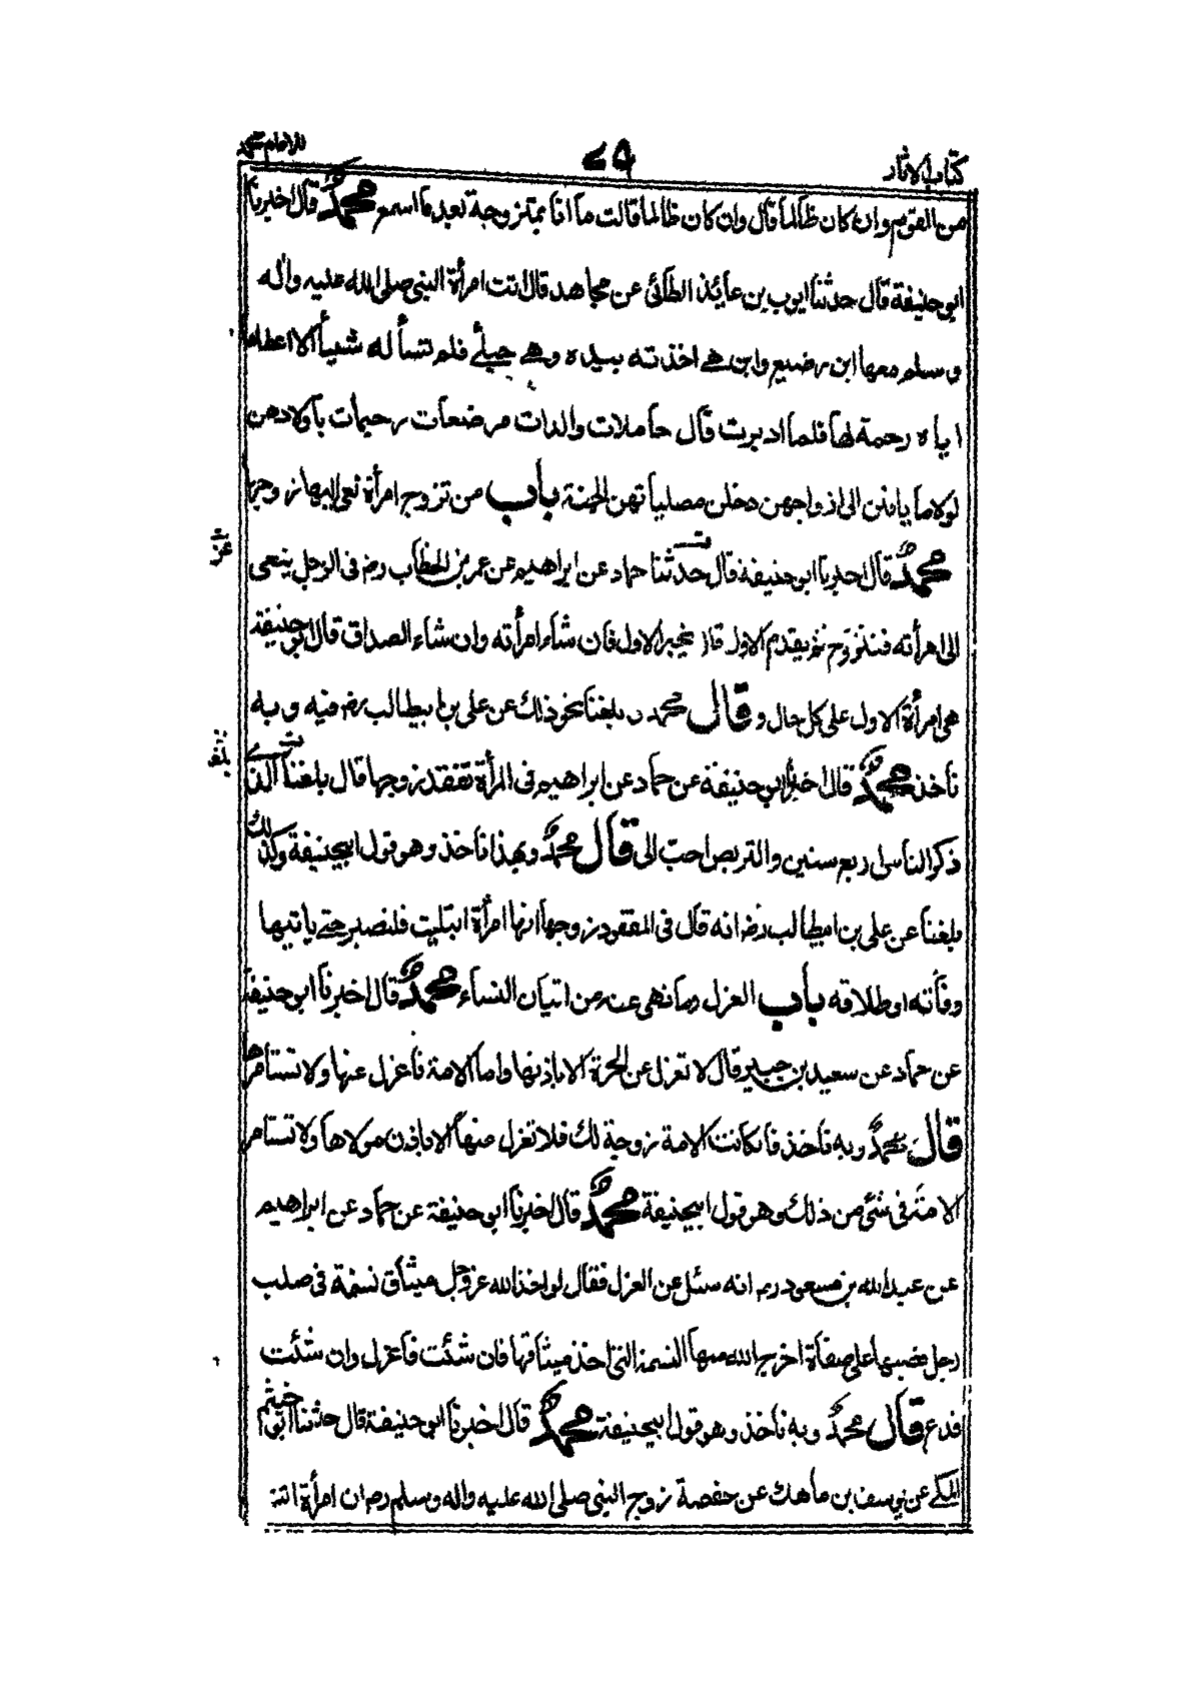 كتاب الآثار
٧٩
للامام محمد
من القوم وان كان ظالما قال وان كان ظالما قالت ما انا بمتزوجة بعد ما اسمع محمد قال اخبرنا
ابو حنيفة قال حدثنا ايوب بن عائذ الطائى عن مجاهد قال اتت امرأة النبى صلى الله عليه واله
وسلم معها ابن رضيع وابن هے اخذته بيده وهے حبلے فلم تسأله شيأ الا اعطاها
اياه رحمة لها فلما ادبرت قال حاملات والدات مرضعات رحيمات باولادهن
لولا ما ياتين الى ازواجهن دخلن مصلياتهن الجنة باب من تزوج امرأة نعى اليها زوجها
محمد قال اخبرنا ابو حنيفة قال حدثنا حماد عن ابراهيم عن عمر بن الخطاب رض فى الرجل ينعى
الى امرأته فتتزوج ثم يقدم الاول قال يخير الاول فان شاء امرأته وان شاء الصداق قال ابو حنيفة
هى امرأة الاول على كل حال وقال محمد بلغنا نحو ذلك عن على بن ابيطالب رض فيه وبه
نأخذ محمد قال اخبرنا ابو حنيفة عن حماد عن ابراهيم فى المرأة تفقد زوجها قال بلغنا الذے
ذكر الناس اربع سنين والتربص احب الى قال محمد وبهذا نأخذ وهو قول ابيحنيفة وكذلك
بلغنا عن على بن ابيطالب رض انه قال فى المفقود زوجها انها امرأة ابتليت فلتصبر حتے ياتيها
وفاته او طلاقه باب العزل وما نهى عنه من اتيان النساء محمد قال اخبرنا ابو حنيفة
عن حماد عن سعيد بن جبير قال لا تعزل عن الحرة الا باذنها واما الامة فاعزل عنها ولا تستأمرها
قال محمد وبه نأخذ فان كانت الامة زوجة لك فلا تعزل منها الا باذن مولاها ولا تستامر
الامة فى شئ من ذلك وهو قول ابيحنيفة محمد قال اخبرنا ابو حنيفة عن حماد عن ابراهيم
عن عبد الله بن مسعود رض انه سئل عن العزل فقال لو اخذ الله عز وجل ميثاق نسمة فى صلب
رجل فصبها على صفاة اخرج الله منها النسمة التى اخذ ميثاقها فان شئت فاعزل وان شئت
فدع قال محمد وبه نأخذ وهو قول ابيحنيفة محمد قال اخبرنا ابو حنيفة قال حدثنا ابو خيثم
المكے عن يوسف بن ماهك عن حفصة زوج النبى صلى الله عليه واله وسلم رض ان امرأة اتته